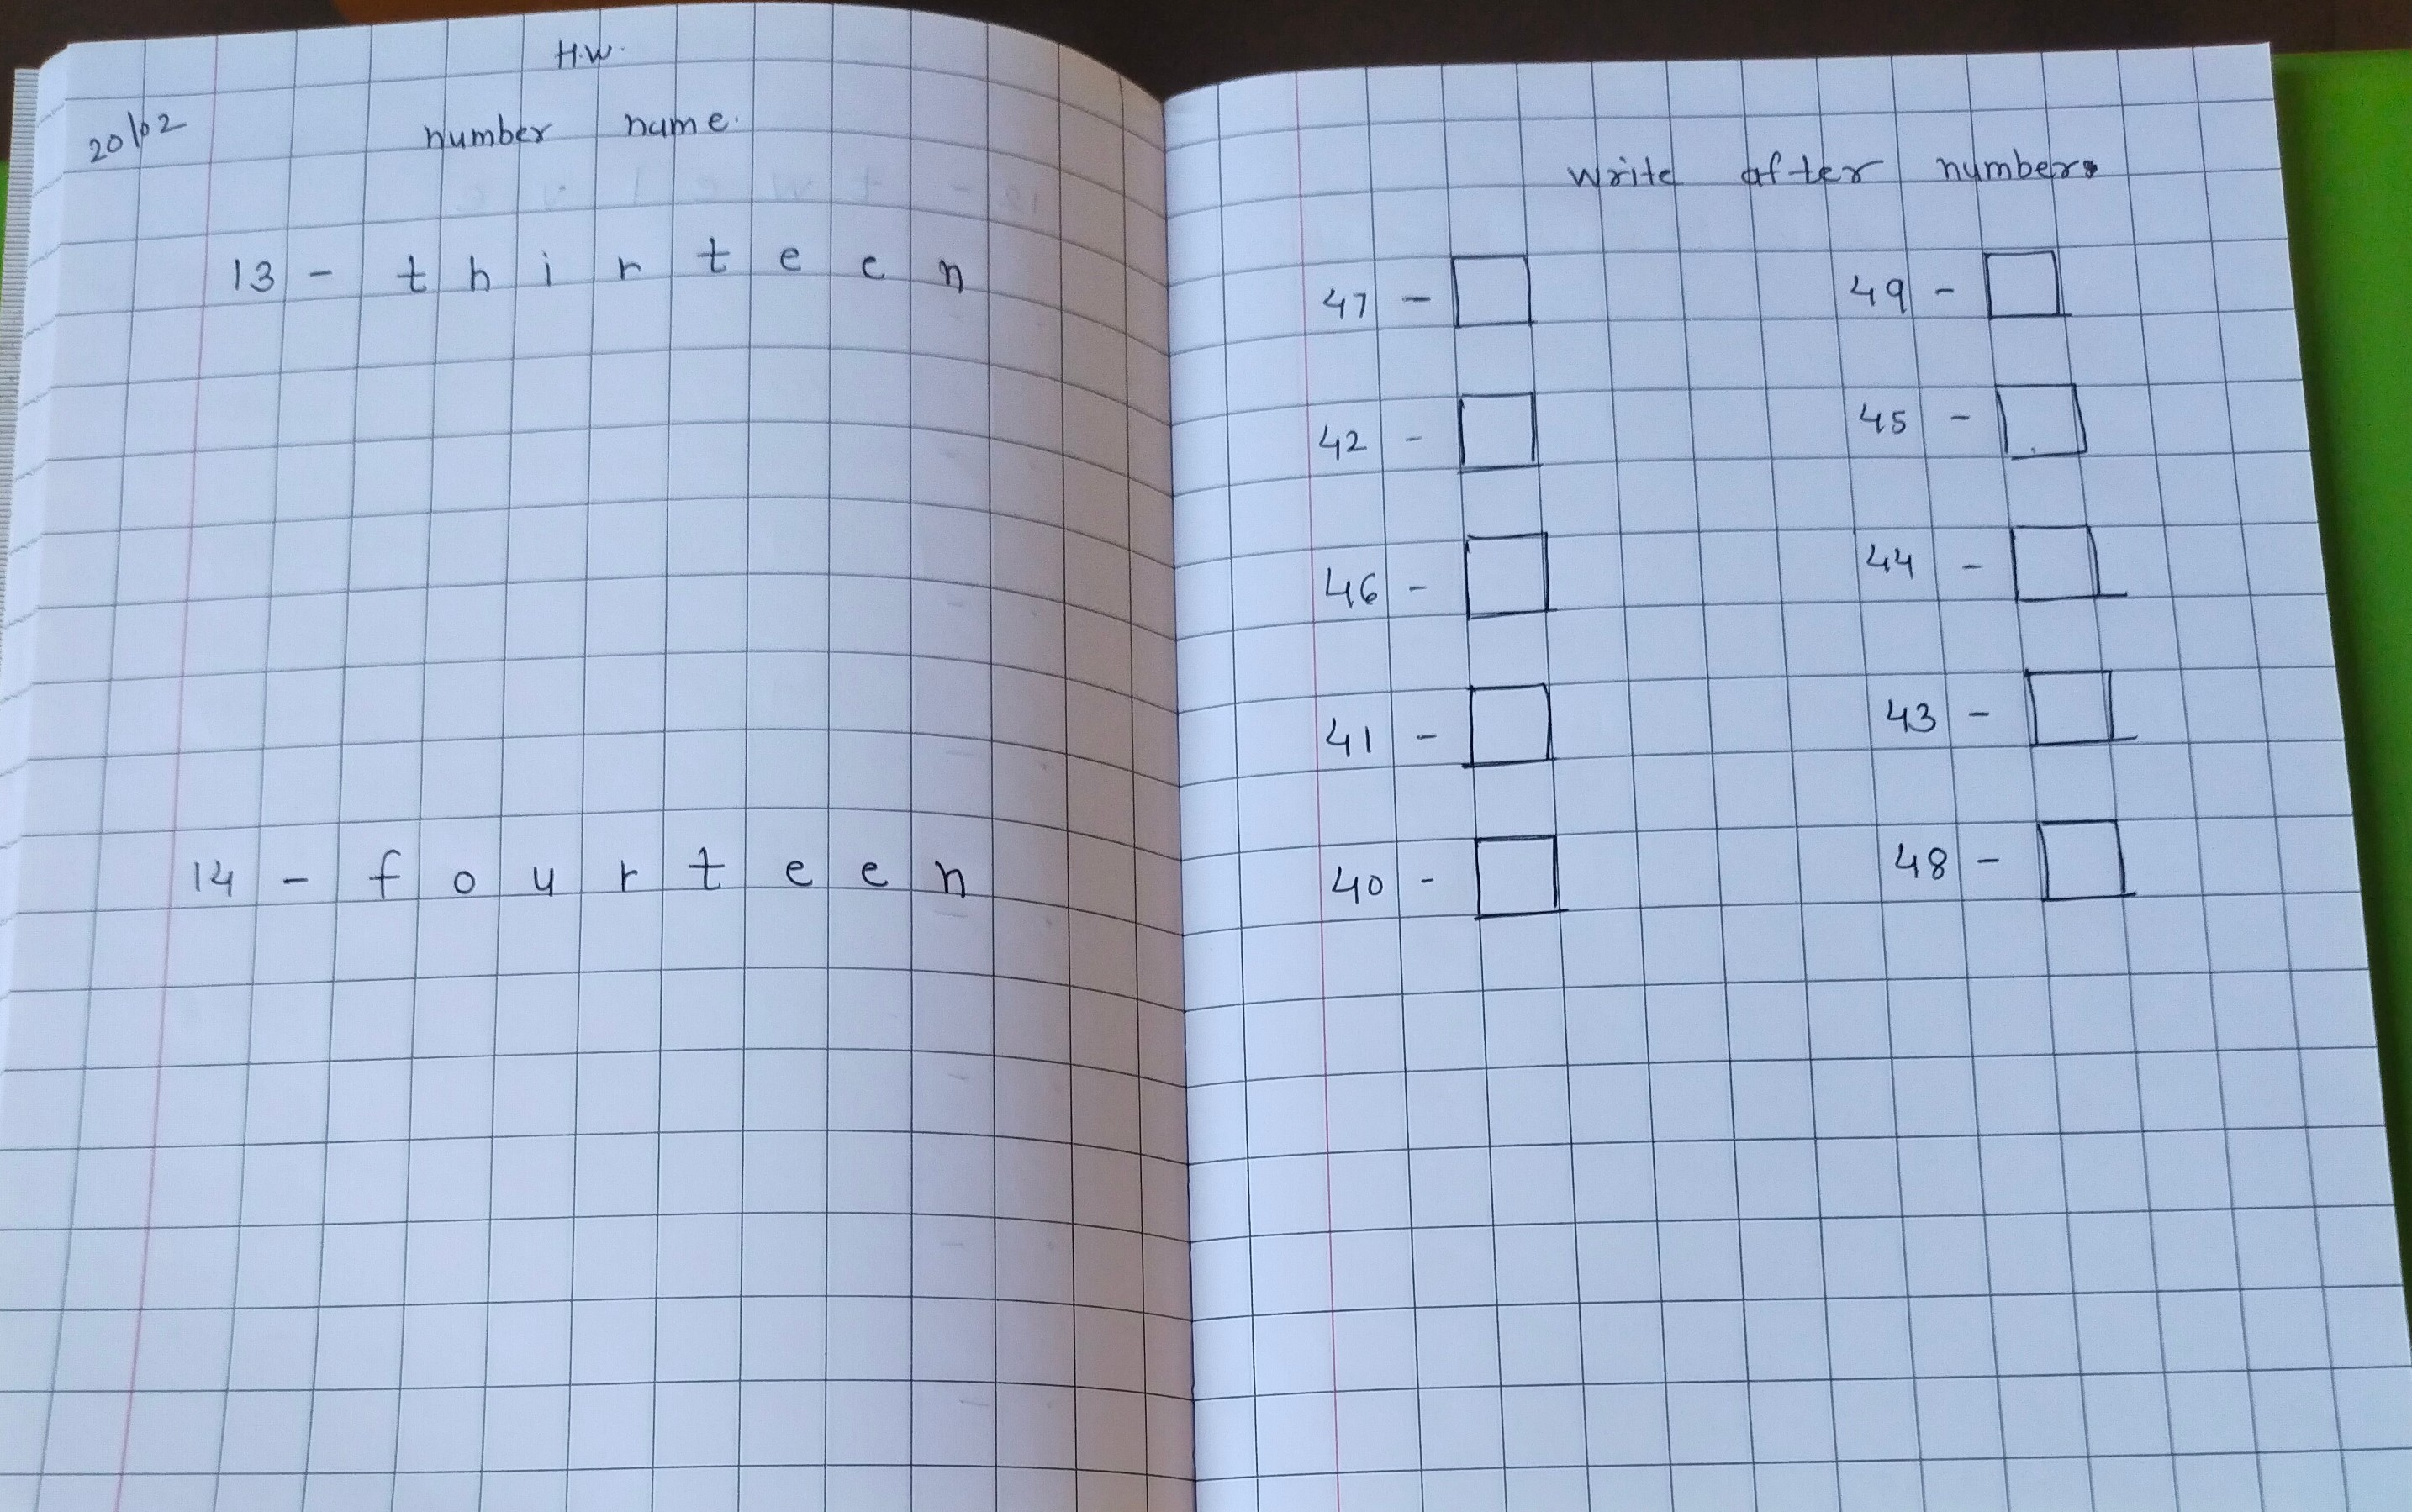 H.W.
20/02
number name.
13 - thirteen
14 - fourteen
write after number.
47 - 49 -
42 - 45 -
46 - 44 -
41 - 43 -
40 - 48 -